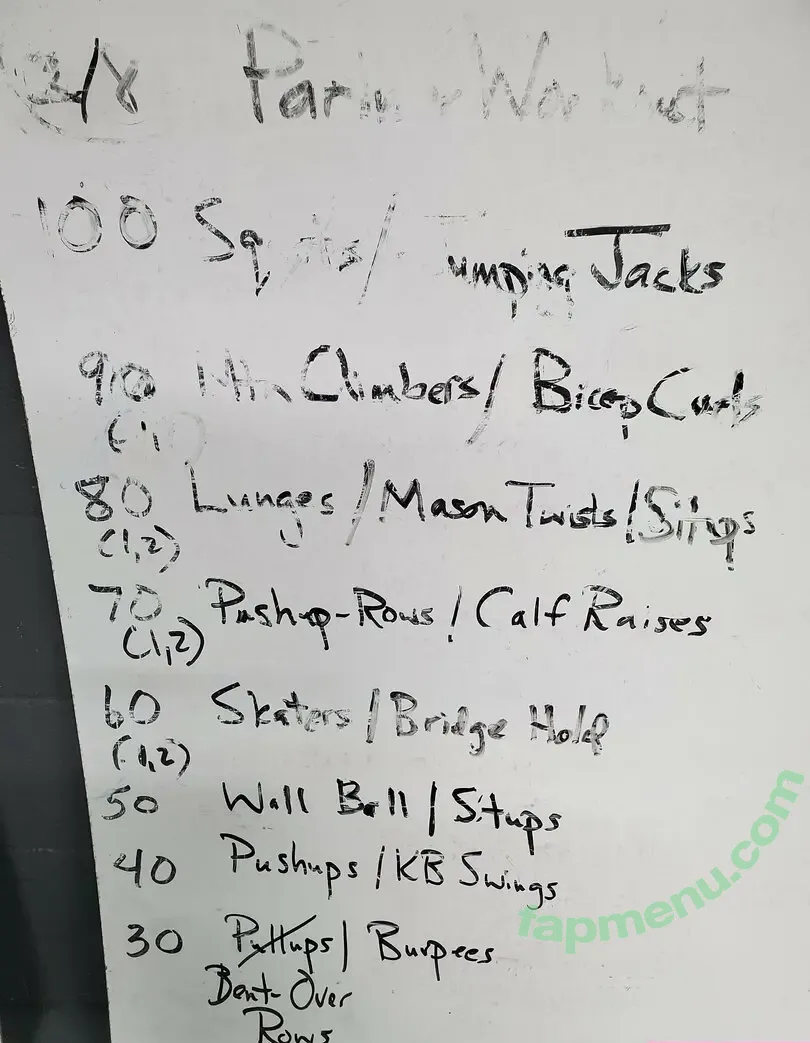 3/8 Partner Workout
100 Squats/Jumping Jacks
90 Mtn Climbers/Bicep Curls
(1,
80 Lunges/Mason Twists/Situps
(1,2)
70 Pushup-Rows/Calf Raises
(1,2)
60 Skaters/Bridge Hold
(1,2)
50 Wall Ball/Situps
40 Pushups/KB Swings
30 Pullups/Burpees
Bent-Over
Rows
fapmenu.com